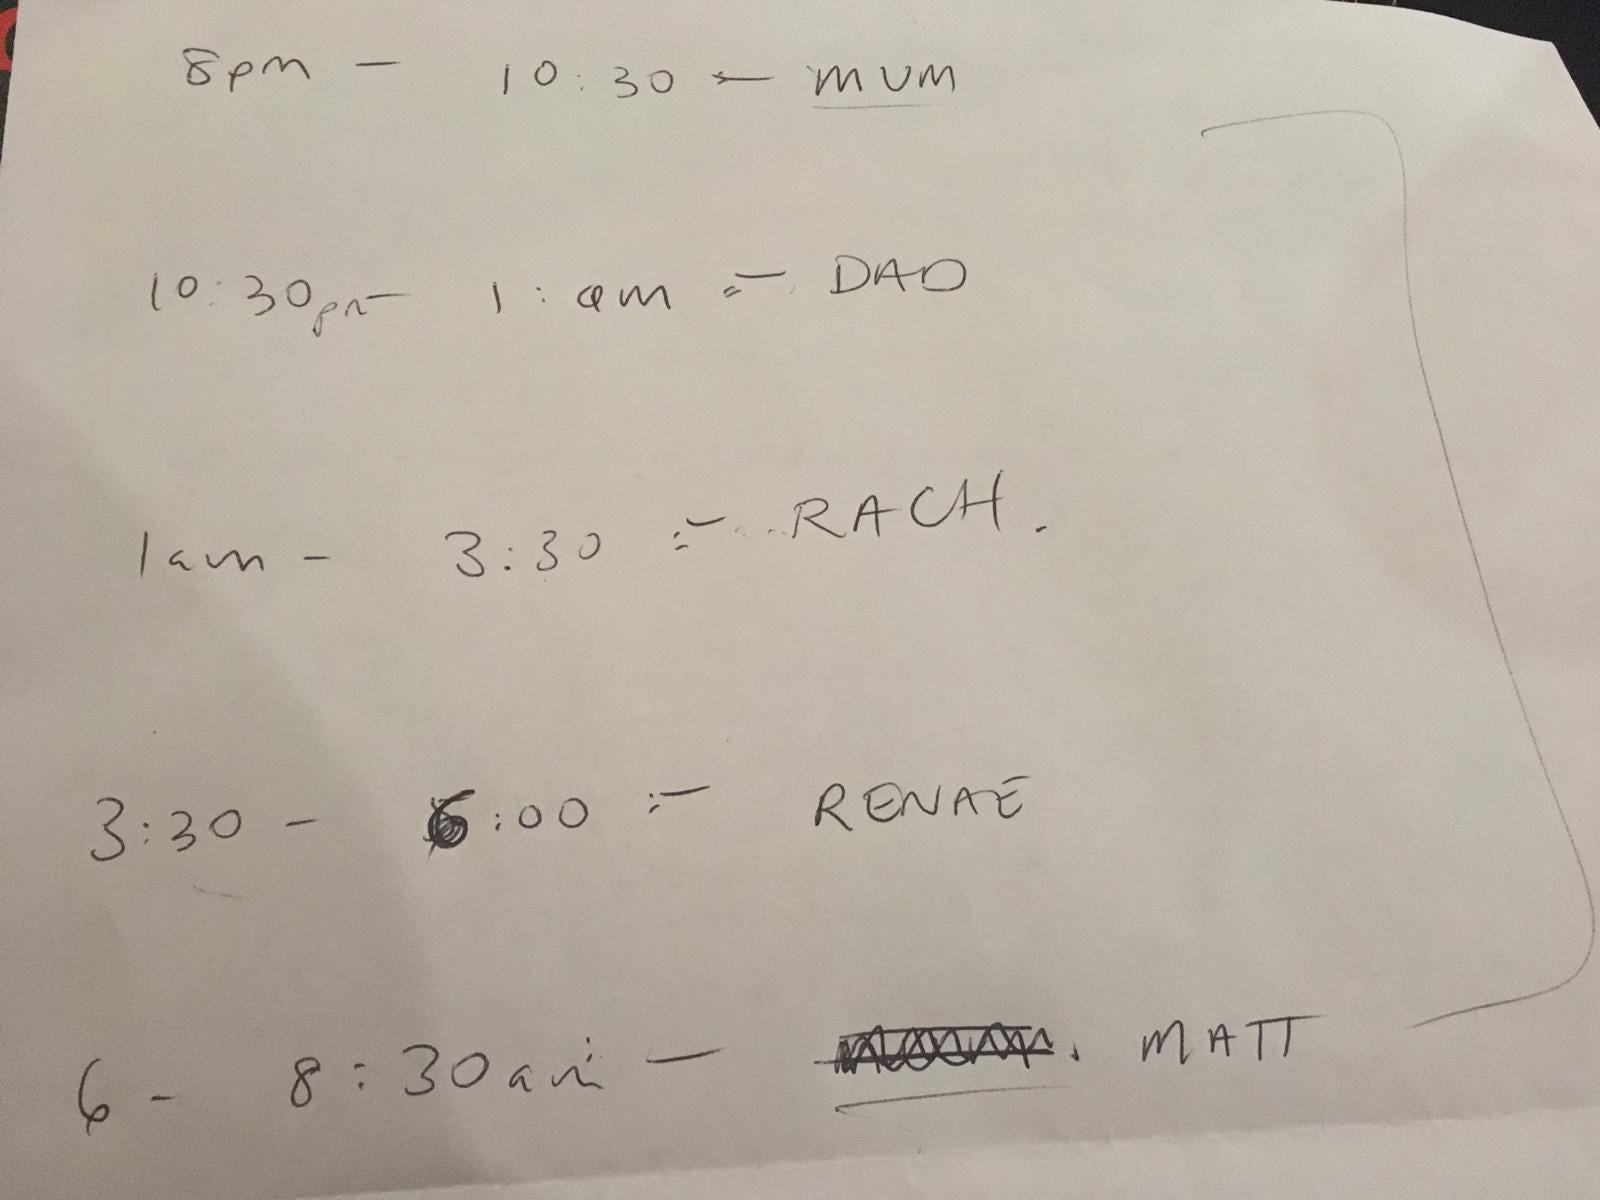 8pm - 10:30 - MUM
10:30pm - 1:am :- DAD
1am - 3:30 :- RACH.
3:30 - 6:00 :- RENAE
6 - 8:30am - . MATT